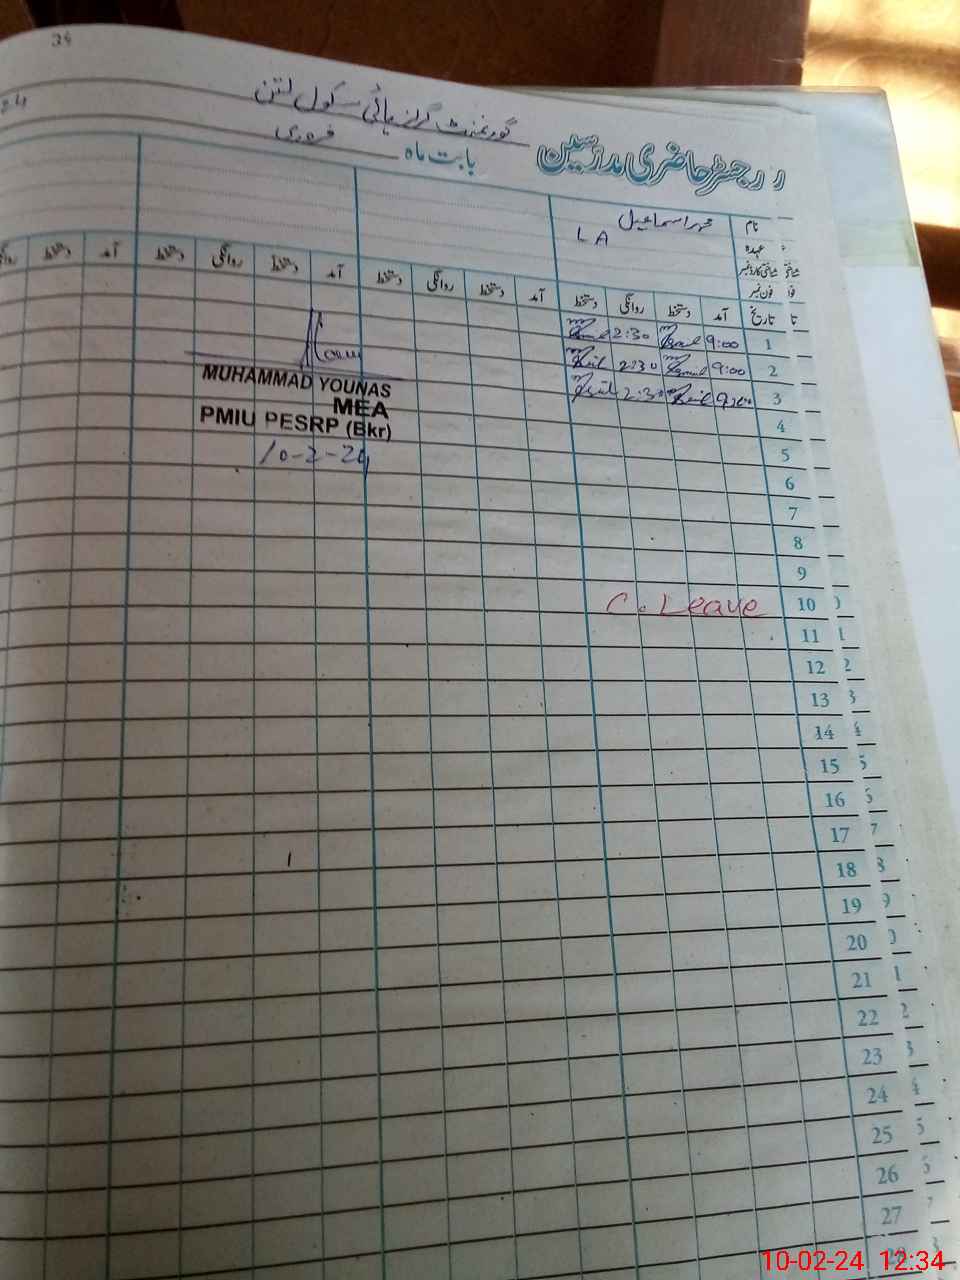 34
گورنمنٹ گرلز ہائی سکول لتن
رجسٹر حاضری مدرسین
بابت ماہ فروری
نام محمد اسماعیل
عہدہ LA
شناختی کارڈ نمبر
فون نمبر
تاریخ آمد دستخط روانگی دستخط آمد دستخط روانگی دستخط آمد دستخط روانگی دستخط آمد دستخط
1 9:00 2:30
2 9:00 2:30
3 9:00 2:30
4
5
6
7
8
9
10 C. Leave
11
12
13
14
15
16
17
18
19
20
21
22
23
24
25
26
27
28
MUHAMMAD YOUNAS
MEA
PMIU PESRP (Bkr)
10-2-24
10-02-24 12:34